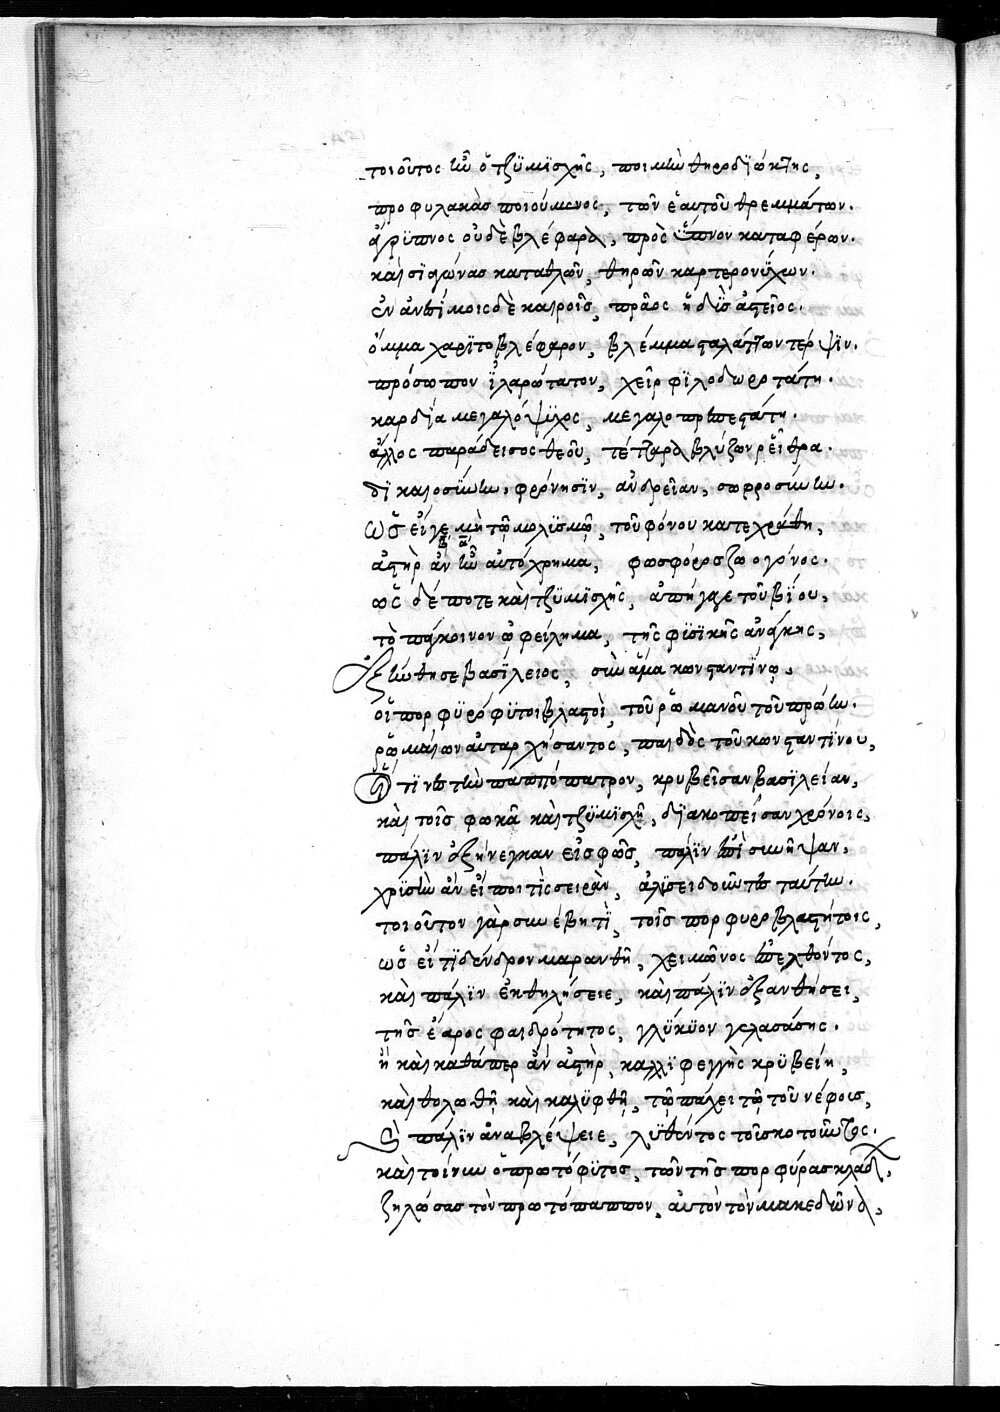 τοιοῦτος ἦν ὁ τζϋμϊσχῆς, ποιμὴν θηροδϊώκτης,
προφυλακὰσ ποιούμενος, τῶν ἑαυτοῦ θρεμμάτων.
ἄγρϋπνος οὐδὲ βλέφαρα, πρὸς ὕπνον καταφέρων.
καὶ σϊαγώνας καταθλῶν, θηρῶν καρτερονύχων.
ἐν ἀνθίμοις δὲ καιροῖς, πρᾶος ἡδῢς ἀστεῖος.
ὄμμα χαρϊτοβλέφαρον, βλέμμα σταλάττων τέρψϊν.
πρόσωπον ἱλαρώτατον, χεῖρ φϊλοδωροτάτη.
καρδία μεγαλόψϋχος, μεγαλοπρεπεστάτη.
ἄλλος παράδεισος θεοῦ, τέτταρα βλύζων ρεῖθρα.
δϊκαιοσύνην, φρόνησϊν, ἀνδρεῖαν, σωφροσύνην.
ὡς εἴγε μὴ τῷ μολϊσμῷ, τοῦ φόνου κατεχράθη,
ἀστὴρ ἂν ἦν αὐτόχρημα, φωσφόρος ζωογόνος.
ὡς δέ ποτε καὶ τζϋμϊσχῆς, ἀπήγαγε τοῦ βίου,
τὸ παγκοινον ὠφείλημα, τῆς φϋσϊκῆς ἀνάγκης,
ἐξώθησε βασίλειος, σὺν ἅμα κωνσταντίνῳ.
οἱ πορφϋρόφϋτοι βλαστοὶ, τοῦ ρωμανοῦ τοῦ πρώην.
ρωμαίων αὐταρχήσαντος, παιδὸς τοῦ κωνσταντίνου,
οἵτϊνες τὴν παππόπατρον, κρυβεῖσαν βασϊλείαν,
καὶ τοῖς φωκᾶ καὶ τζϋμϊσχῆ, δϊακοπεῖσαν χρόνοις,
πάλϊν ἐξήνεγκαν εἰς φῶς, πάλϊν ἐπισυνῆψαν,
χρϋσῆν ἂν εἴποι τὶς σειρὰν, ἀλύσει δοῦντες ταύτην.
τοιοῦτον γὰρ συνέβη τῒ, τοῖς πορφυροβλαστήτοις,
ὡς εἴ τϊ δένδρον μαρανθῆ, χειμῶνος ἐπελθόντος,
καὶ πάλϊν ἐκθηλήσειε, καὶ πάλϊν ἐξανθήσει,
τῆς ἔαρος φαιδρότητος, γλϋκϋον γελασάσης.
ἢ καὶ καθάπερ ἂν ἀστὴρ, καλλϊφεγγὴς κρϋβείη,
καὶ θολωθῆ καὶ καλϋφθῆ, τῷ πάχει τῷ τοῦ νέφους,
καὶ πάλϊν ἀναβλέψειε, λϋθέντος τοῦ σκοτοῦντος.
καὶ τοίνυν ὁ πρωτόφϋτος, τῶν τῆς πορφύρας κλάδων,
ζηλώσας τὸν πρωτόπαππον, αὐτὸν τὸν μακεδῶνα,